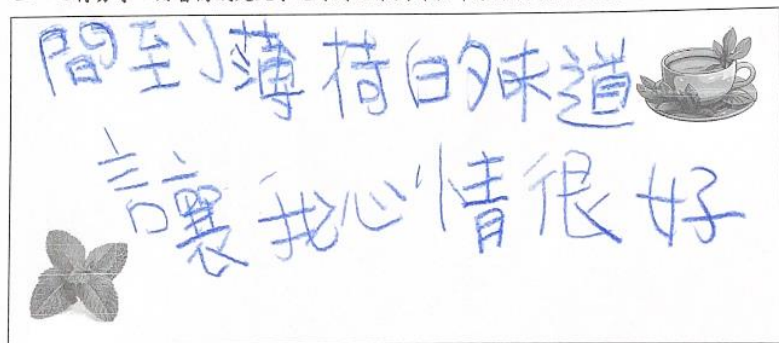 間到薄荷的味道
讓我心情很好